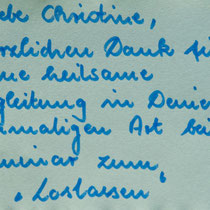 ebe Christine,
rzlichen Dank fü
ne heilsame
gleitung in Deine
nmaligen Art bei
minar zum
"Loslassen"